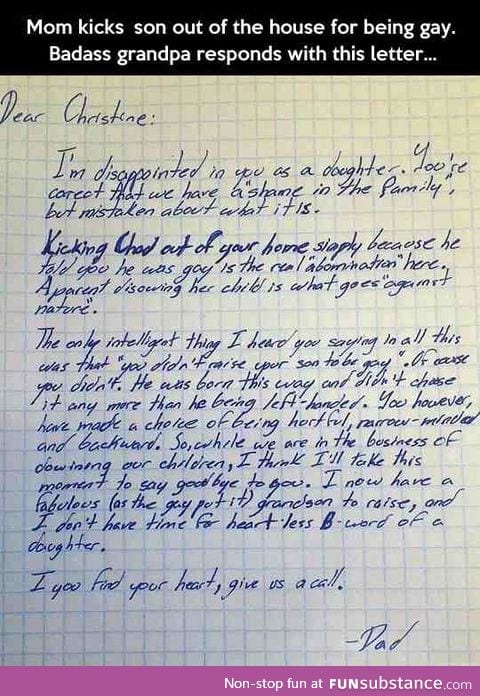 Mom kicks son out of the house for being gay.
Badass grandpa responds with this letter...
Dear Christine:
I'm disappointed in you as a daughter. You're
correct that we have a "shame in the family",
but mistaken about what it is.
Kicking Chad out of your home simply because he
told you he was gay is the real "abomination" here.
A parent disowning her child is what goes "against
nature".
The only intelligent thing I heard you saying in all this
was that "you didn't raise your son to be gay". Of course
you didn't. He was born this way and didn't choose
it any more than he being left-handed. You however,
have made a choice of being hurtful, narrow-minded
and backward. So, while we are in the business of
disowning our children, I think I'll take this
moment to say goodbye to you. I now have a
fabulous (as the gay put it) grandson to raise, and
I don't have time for heart-less B-word of a
daughter.
I you find your heart, give us a call.
-Dad
Non-stop fun at FUNsubstance.com